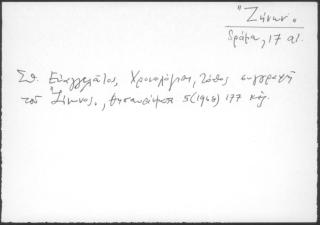 "Ζήνων"
δράμα, 17 αι.
Σπ. Ευαγγελάτος, Χρονολόγηση, τόπος συγγραφή
του "Ζήνωνος", Θησαυρίσματα 5 (1968) 177 κἑξ.